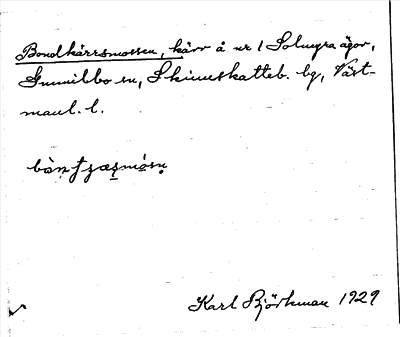 Bondkärrsmossen, kärr å nr 1 Solmyra ägor,
Gunnilbo sn, Skinnskatteb. bg, Väst-
manl. l.
Karl Björkman 1929